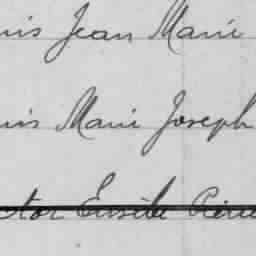 uis Jean Marie
uis Marie Joseph
ctor Pierre